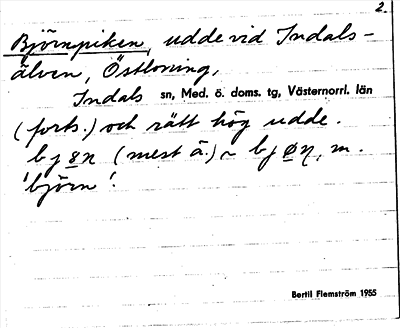 2.
Björnpiken, udde vid Indals-
älven, Östloning,
Indals sn, Med. ö. doms. tg, Västernorrl. län
(forts.) och rätt hög udde.
(mest ä.) ~ m.
'björn'.
Bertil Flemström 1955